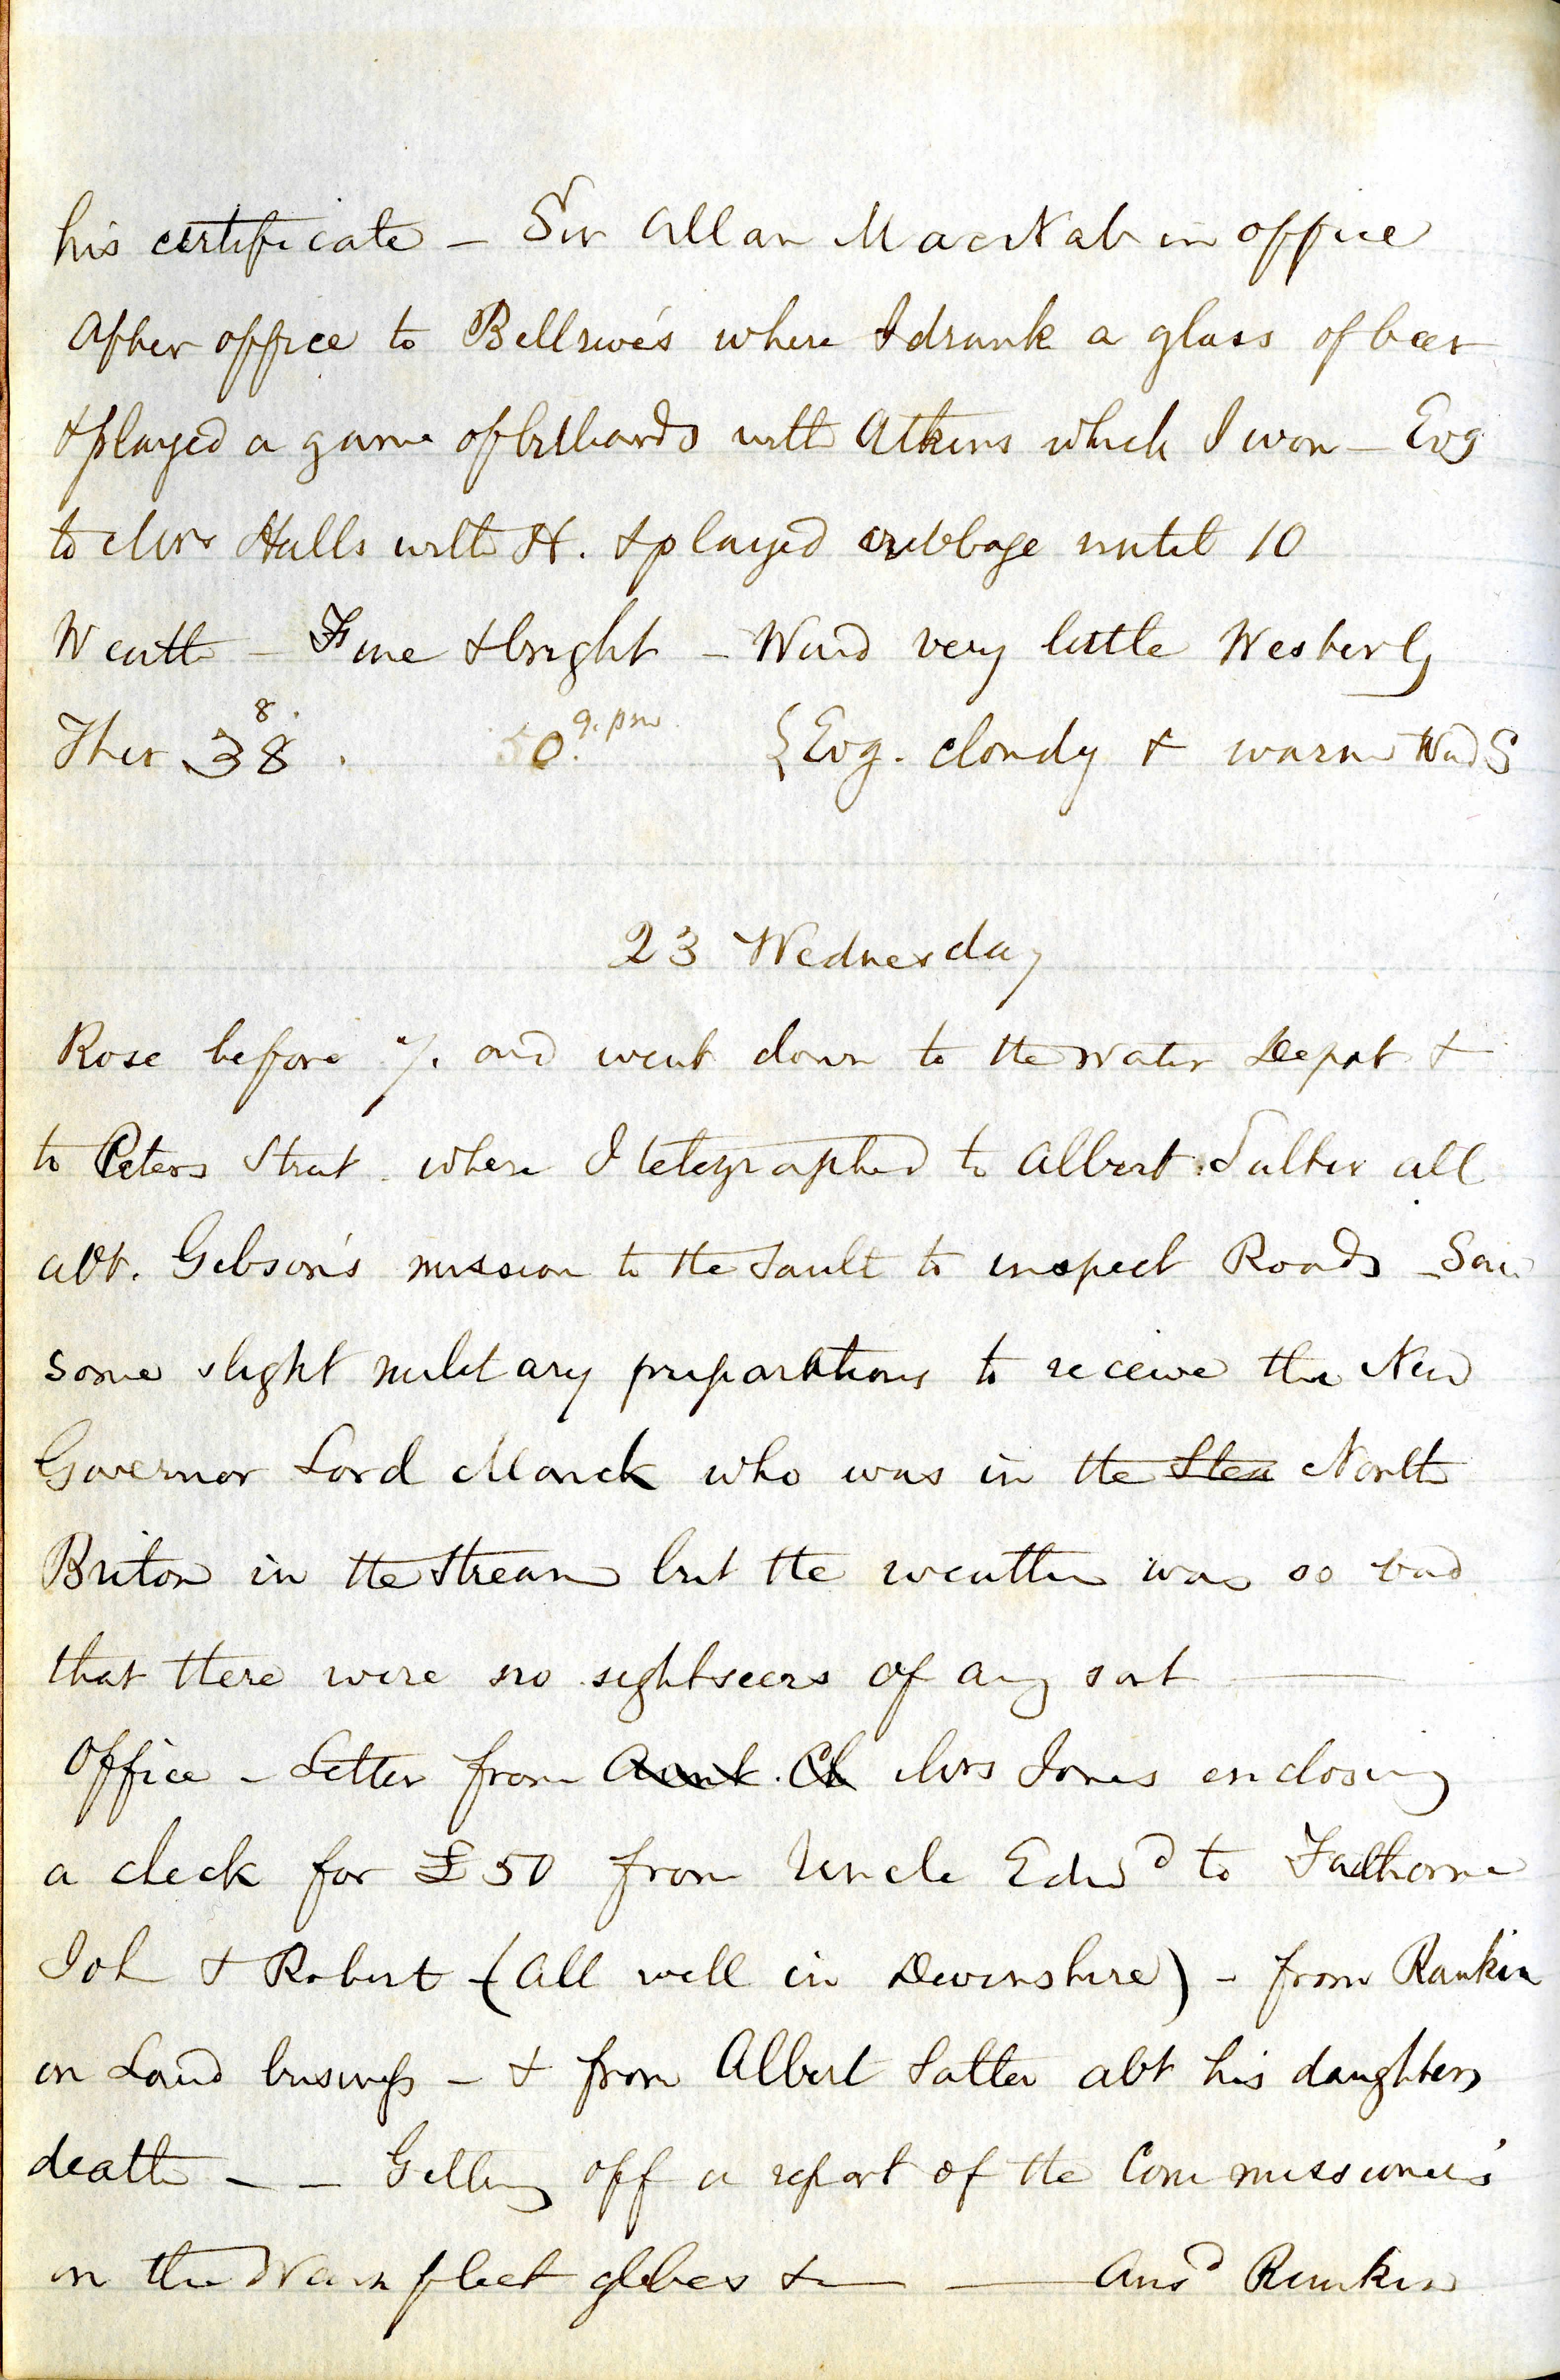 his certificate – Sir Allan MacNab in office
After office to Bellrive's where I drank a glass of beer
& played a game of billiards with Atkins which I won – Evg
to Mrs Halls with H. & played cribbage until 10
Weath – Fine & bright – Wind very little Westerly
Ther 38 8. 50. 9. pm {Evg. cloudy & warm Wnd S
23 Wednesday
Rose before 7. and went down to the water Depot &
to Peters Street where I telegraphed to Albert Salter all
abt. Gibson's mission to the Sault to inspect Roads – Saw
some slight military preparations to receive the New
Governor Lord Monck who was in the Stea North
Briton in the Stream but the weather was so bad
that there were no sightseers of any sort
Office – Letter from Aunt. Ch Mrs Jones enclosing
a check for £50 from Uncle Edwd to
Joh & Robert (All well in Devonshire) – from Rankin
on Land business – & from Albert Salter abt his daughters
death – – Getting off a report of the Commissioners'
on the Wainfleet glebes & Ansd Rankin